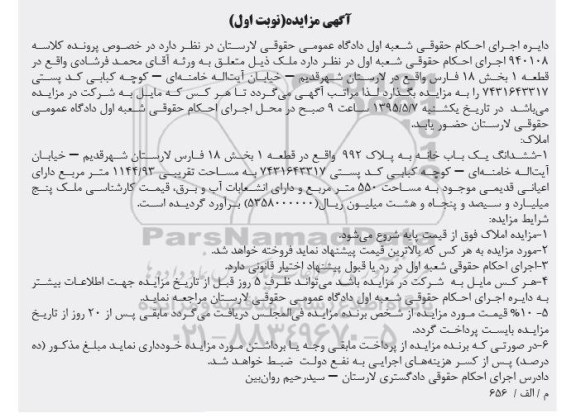 آگهی مزایده(نوبت اول)
دایره اجرای احکام حقوقی شعبه اول دادگاه عمومی حقوقی لارستان در نظر دارد در خصوص پرونده کلاسه
۹۴۰۱۰۸ اجرای احکام حقوقی شعبه اول در نظر دارد ملک ذیل متعلق به ورثه آقای محمد فرشادی واقع در
قطعه ۱ بخش ۱۸ فارس واقع در لارستان شهرقدیم – خیابان آیت‌اله خامنه‌ای – کوچه کبابی کد پستی
۷۴۳۱۶۴۳۳۱۷ را به مزایده بگذارد لذا مراتب آگهی می‌گردد تا هر کس که مایل به شرکت در مزایده
می‌باشد  در تاریخ یکشنبه ۱۳۹۵/۵/۷ ساعت ۹ صبح در محل اجرای احکام حقوقی شعبه اول دادگاه عمومی
حقوقی لارستان حضور یابد.
املاک:
۱-ششدانگ یک باب خانه به پلاک ۹۹۲  واقع در قطعه ۱ بخش ۱۸ فارس لارستان شهرقدیم – خیابان
آیت‌اله خامنه‌ای – کوچه کبابی کد پستی ۷۴۳۱۶۴۳۳۱۷ به مساحت تقریبی ۱۱۴۴/۹۳ متر مربع دارای
اعیانی قدیمی موجود به مساحت ۵۵۰ متر مربع و دارای انشعابات آب و برق، قیمت کارشناسی ملک پنج
میلیارد و سیصد و پنجاه و هشت میلیون ریال(۵۳۵۸۰۰۰۰۰۰) برآورد گردیده است.
شرایط مزایده:
۱-مزایده املاک فوق از قیمت پایه شروع می‌شود.
۲-مورد مزایده به هر کس که بالاترین قیمت پیشنهاد نماید فروخته خواهد شد.
۳-اجرای احکام حقوقی شعبه اول در رد یا قبول پیشنهاد اختیار قانونی دارد.
۴-هر کس مایل به  شرکت در مزایده باشد می‌تواند ظرف ۵ روز قبل از تاریخ مزایده جهت اطلاعات بیشتر
به دایره اجرای احکام حقوقی شعبه اول دادگاه عمومی حقوقی لارستان مراجعه نماید.
۵- ۱۰% قیمت مورد مزایده از شخص برنده مزایده فی‌المجلس دریافت می‌گردد مابقی پس از ۲۰ روز از تاریخ
مزایده بایست پرداخت گردد.
۶-در صورتی که برنده مزایده از پرداخت مابقی وجه یا برداشتن مورد مزایده خودداری نماید مبلغ مذکور (ده
درصد) پس از کسر هزینه‌های اجرایی به نفع دولت  ضبط خواهد شد.
دادرس اجرای احکام حقوقی دادگستری لارستان – سیدرحیم روان‌بین
م / الف / ۶۵۶
ParsNamadData
۰۲۱-۸۸۳۴۹۶۷۰-۵